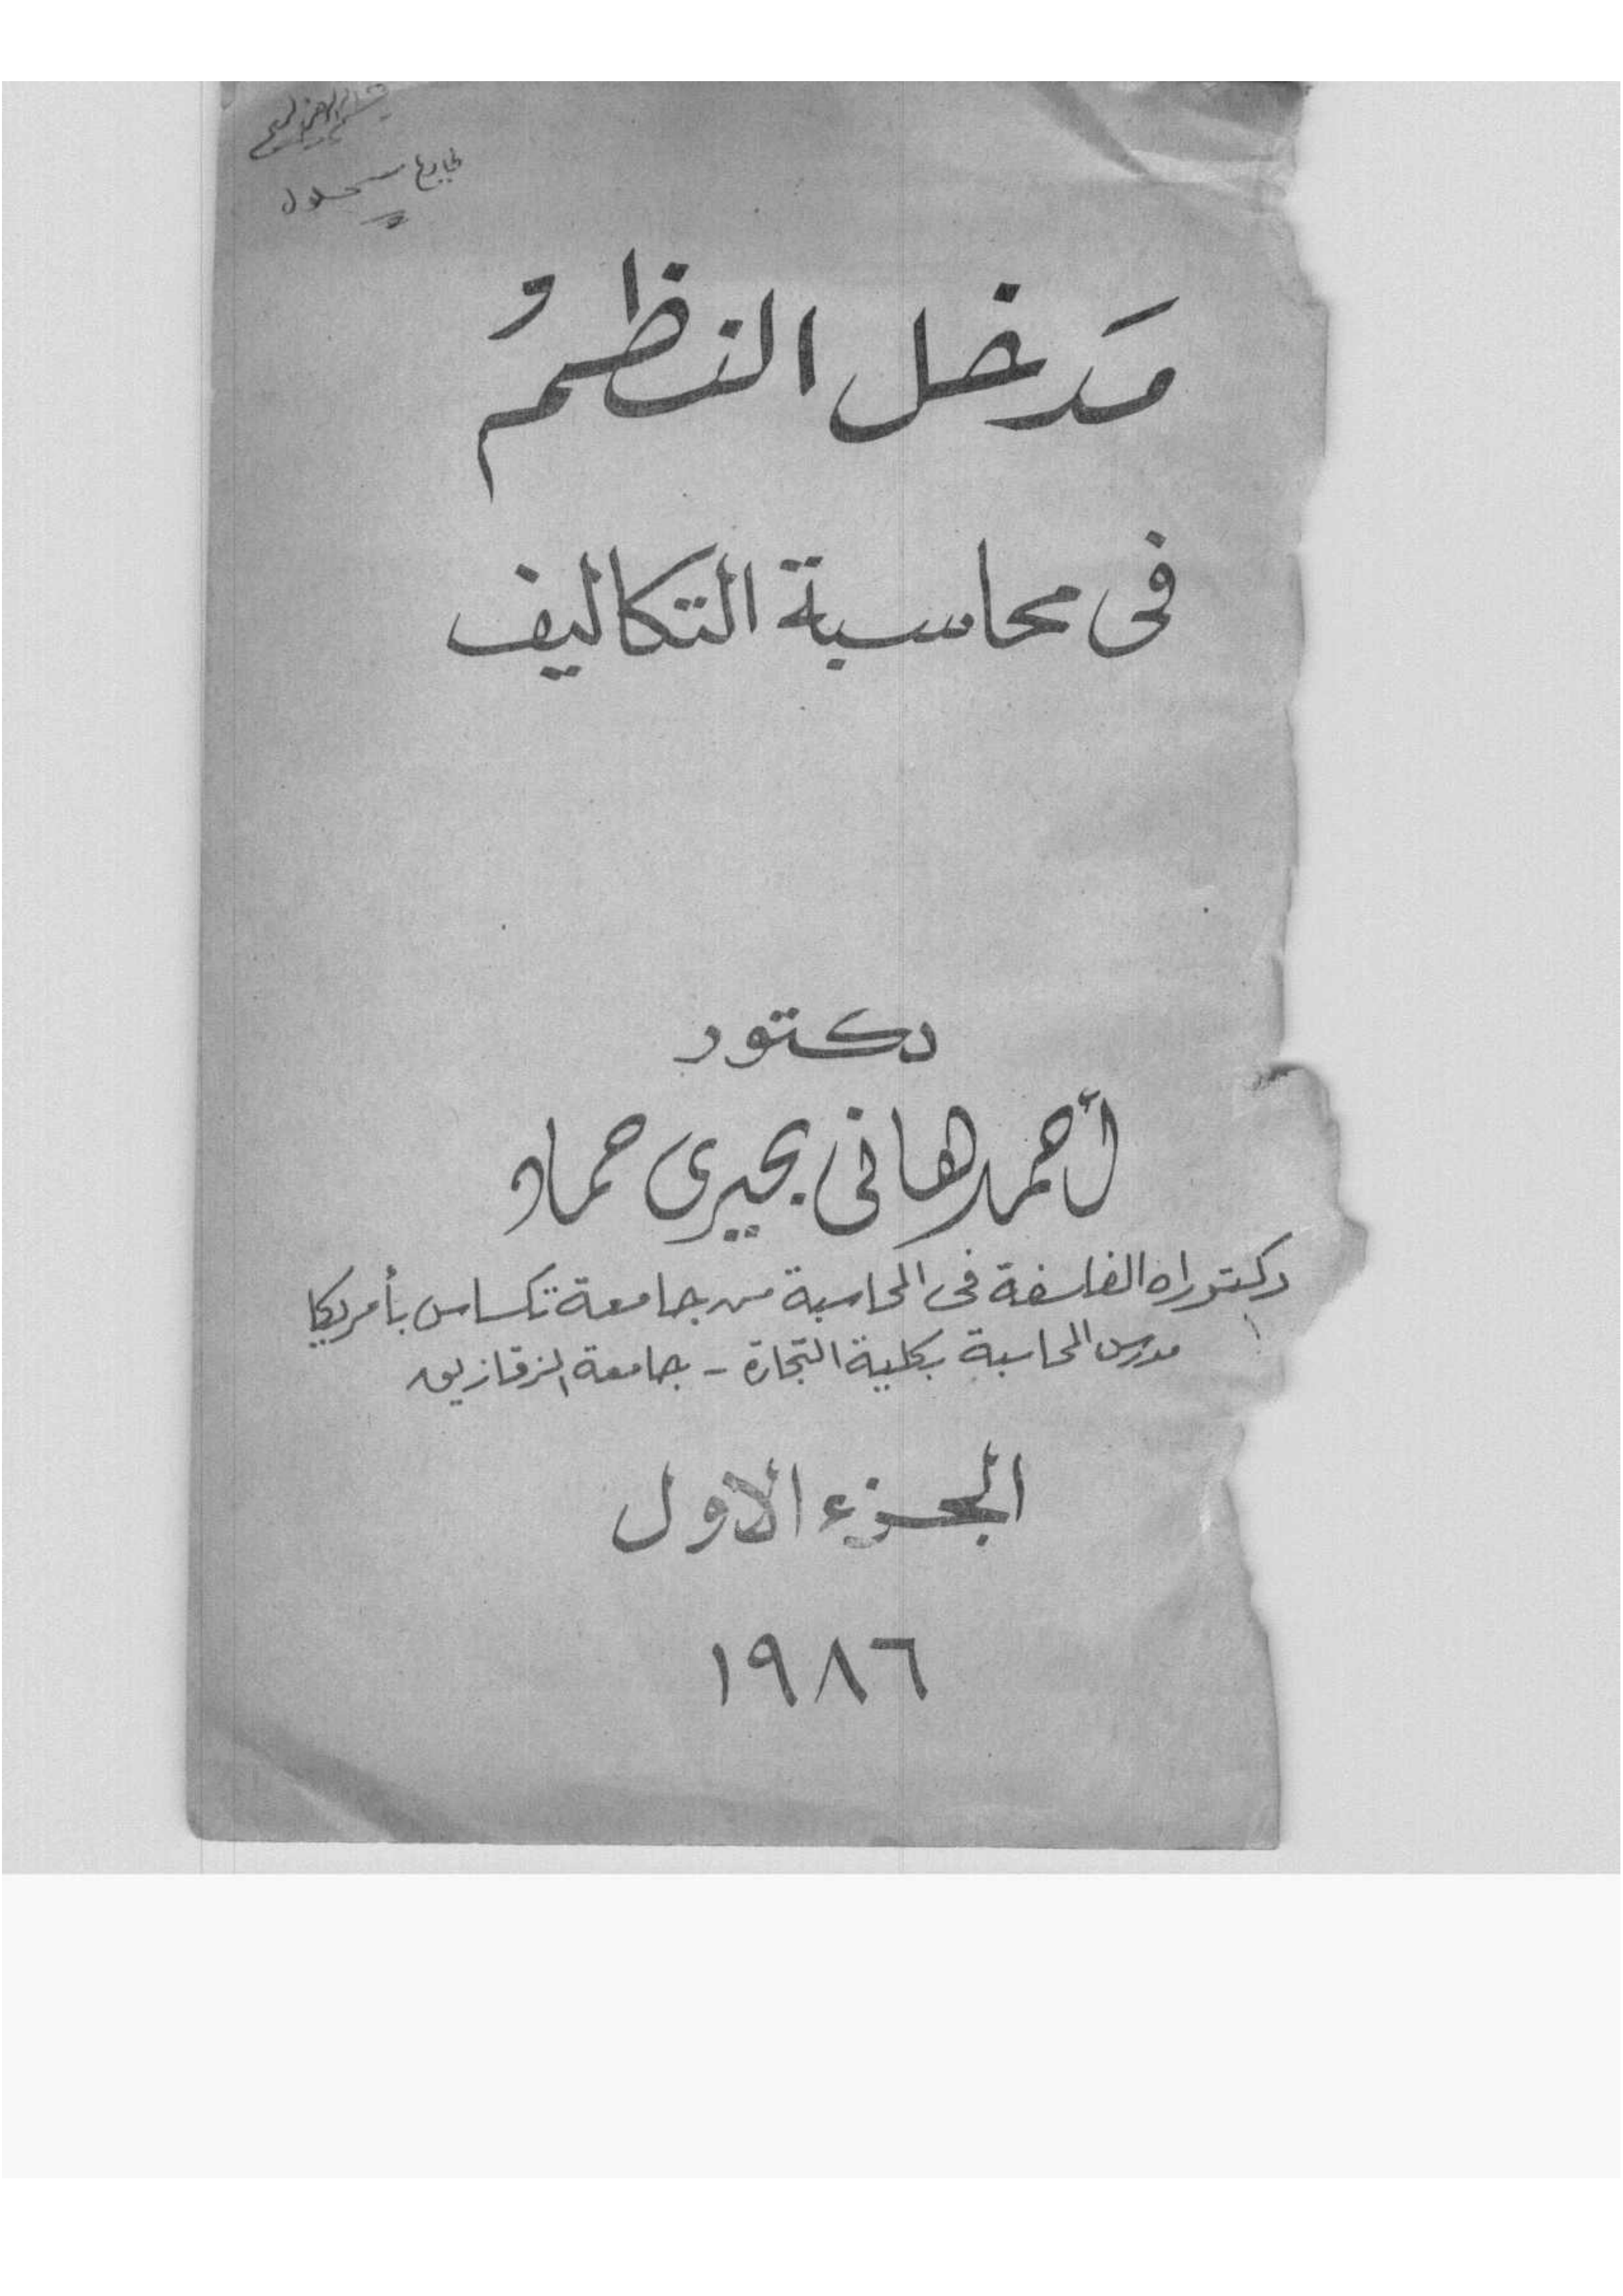 مَدخل النظمُ
فى محاسبة التكاليف
دكتور
أحمد هانى بحيرى حماد
دكتوراه الفلسفة فى المحاسبة من جامعة تكساس بأمريكا
مدرس المحاسبة بكلية التجارة - جامعة الزقازيق
الجزء الاول
١٩٨٦